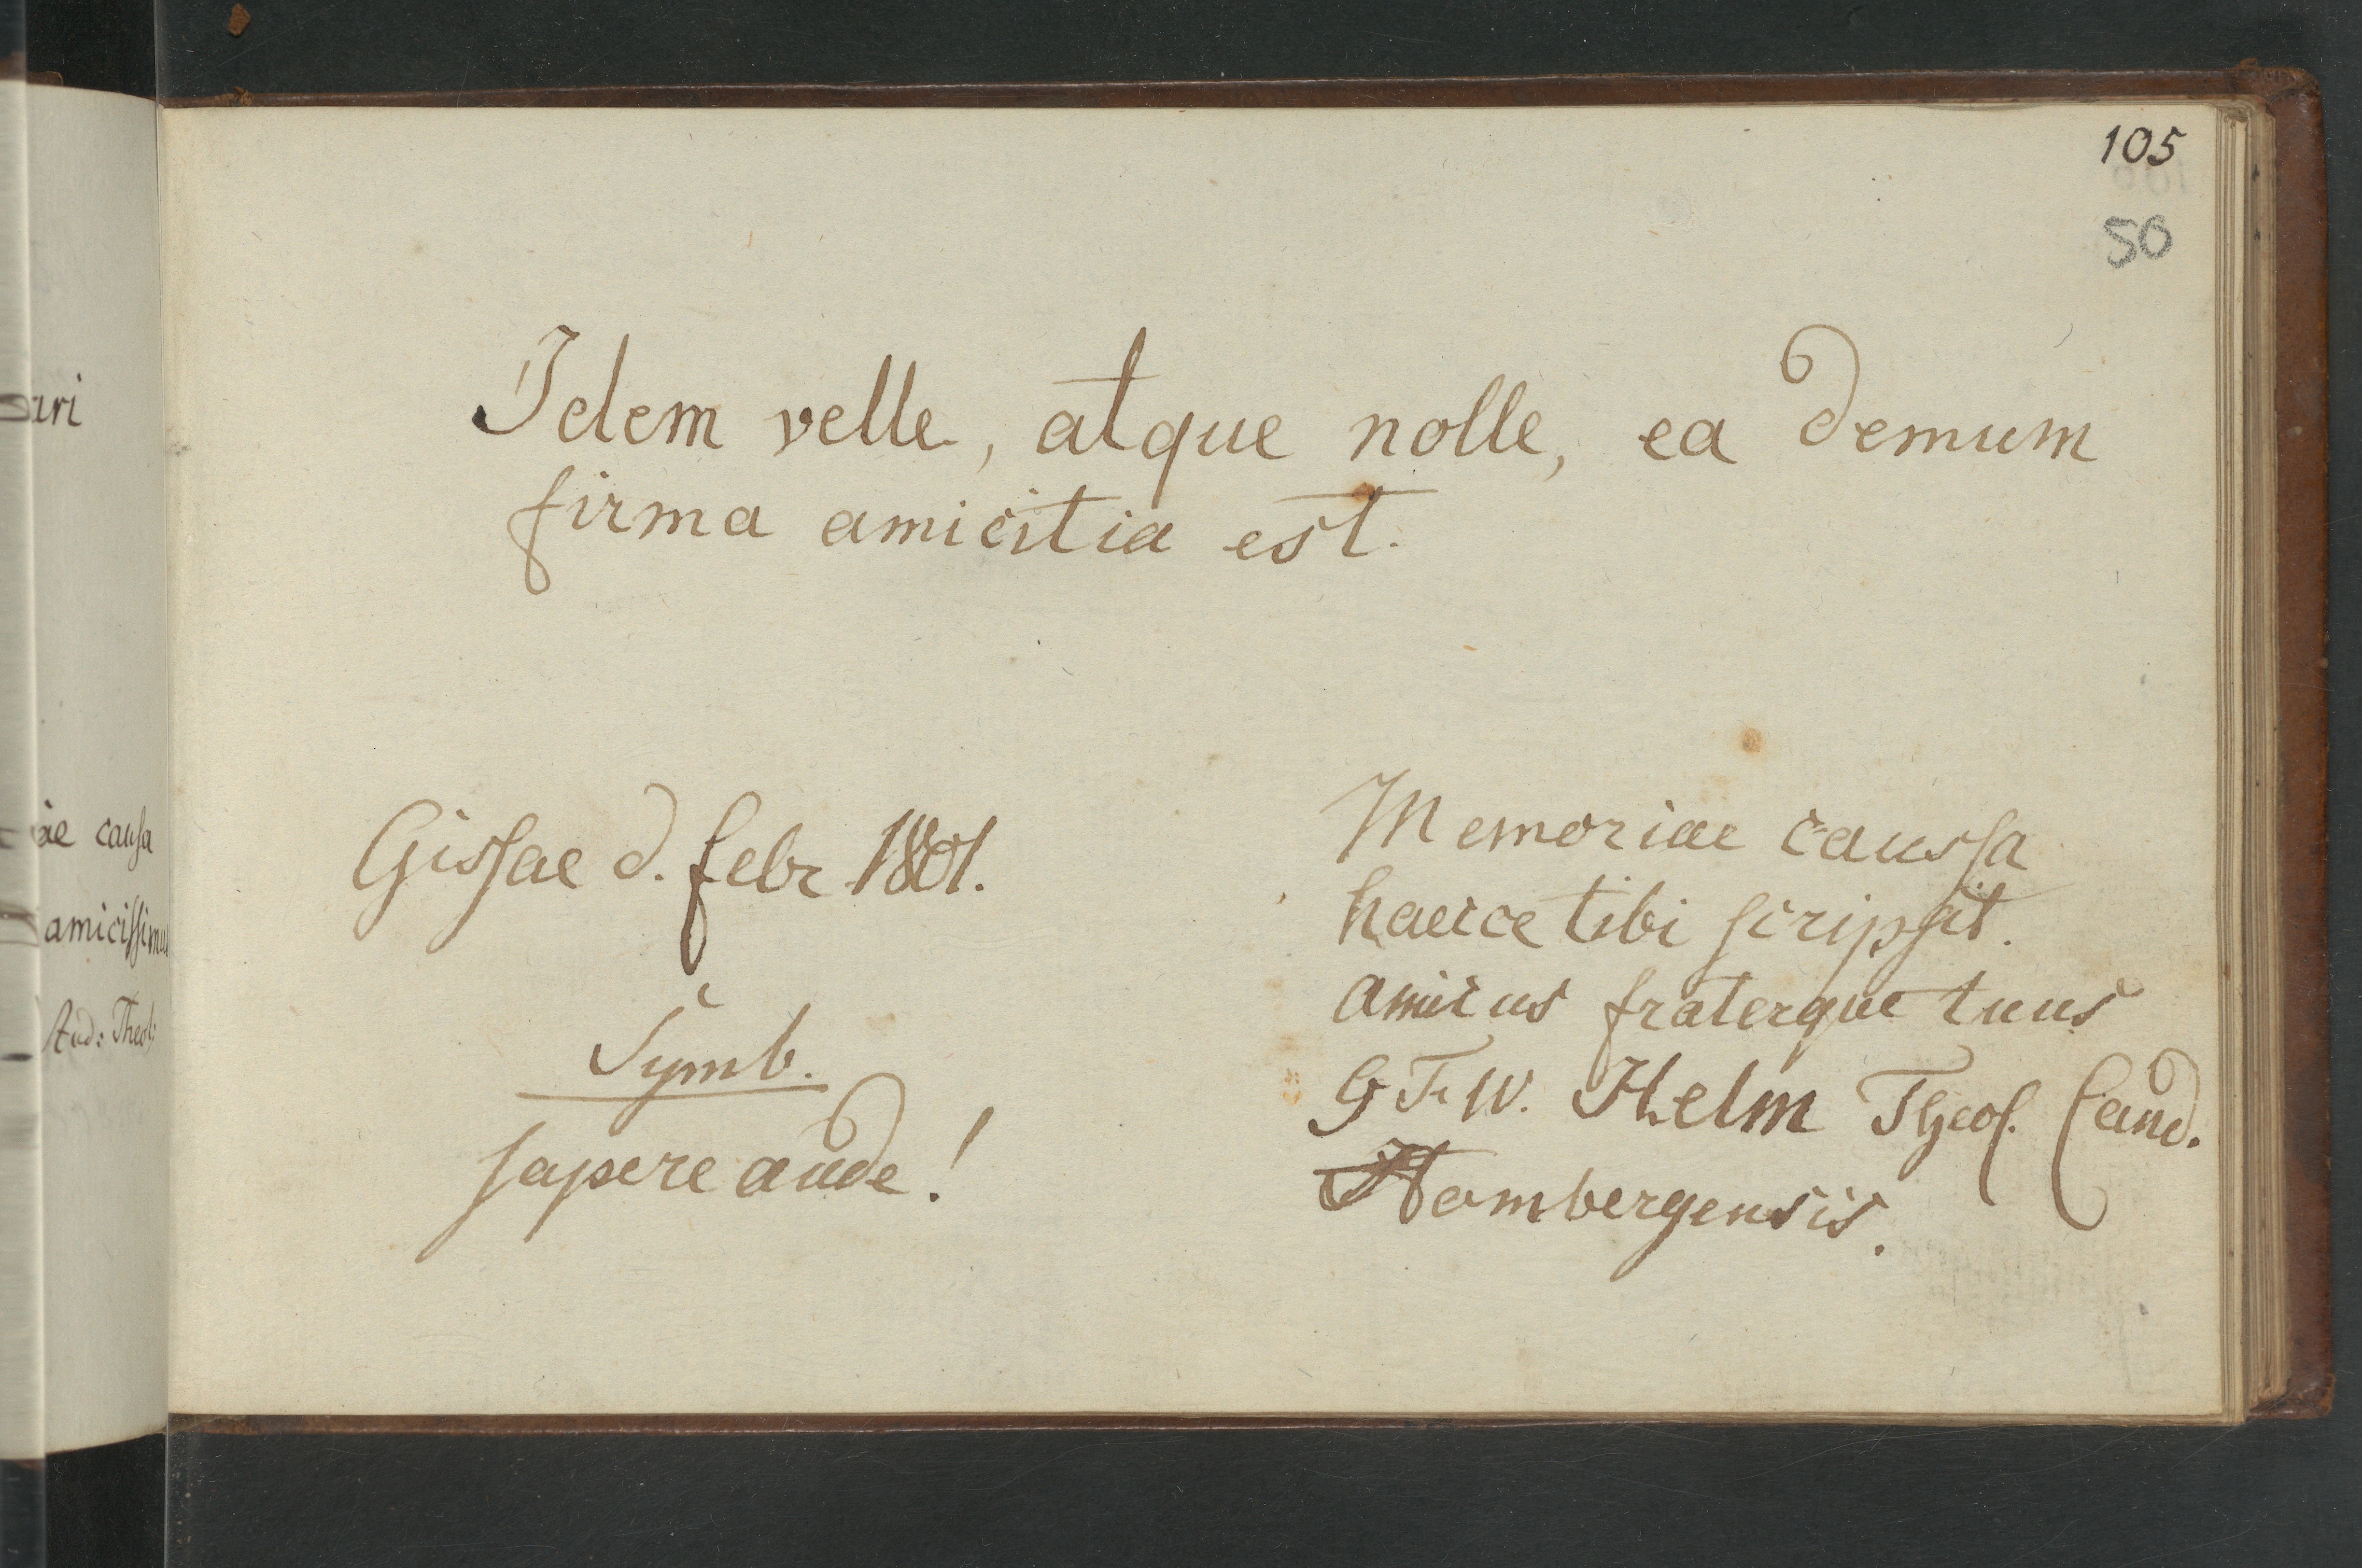 105
50
Idem velle, atque nolle, ea demum
firma amicitia est.
Gissae d. febr. 1801.
Symb.
sapere aude!
Memoriae caussa
haecce tibi scripsit.
amicus fraterque tuus
G. F. W. Helm Theol. Cand.
Hombergensis.
ari
ae causa
amicissimus
Stud: Theol: